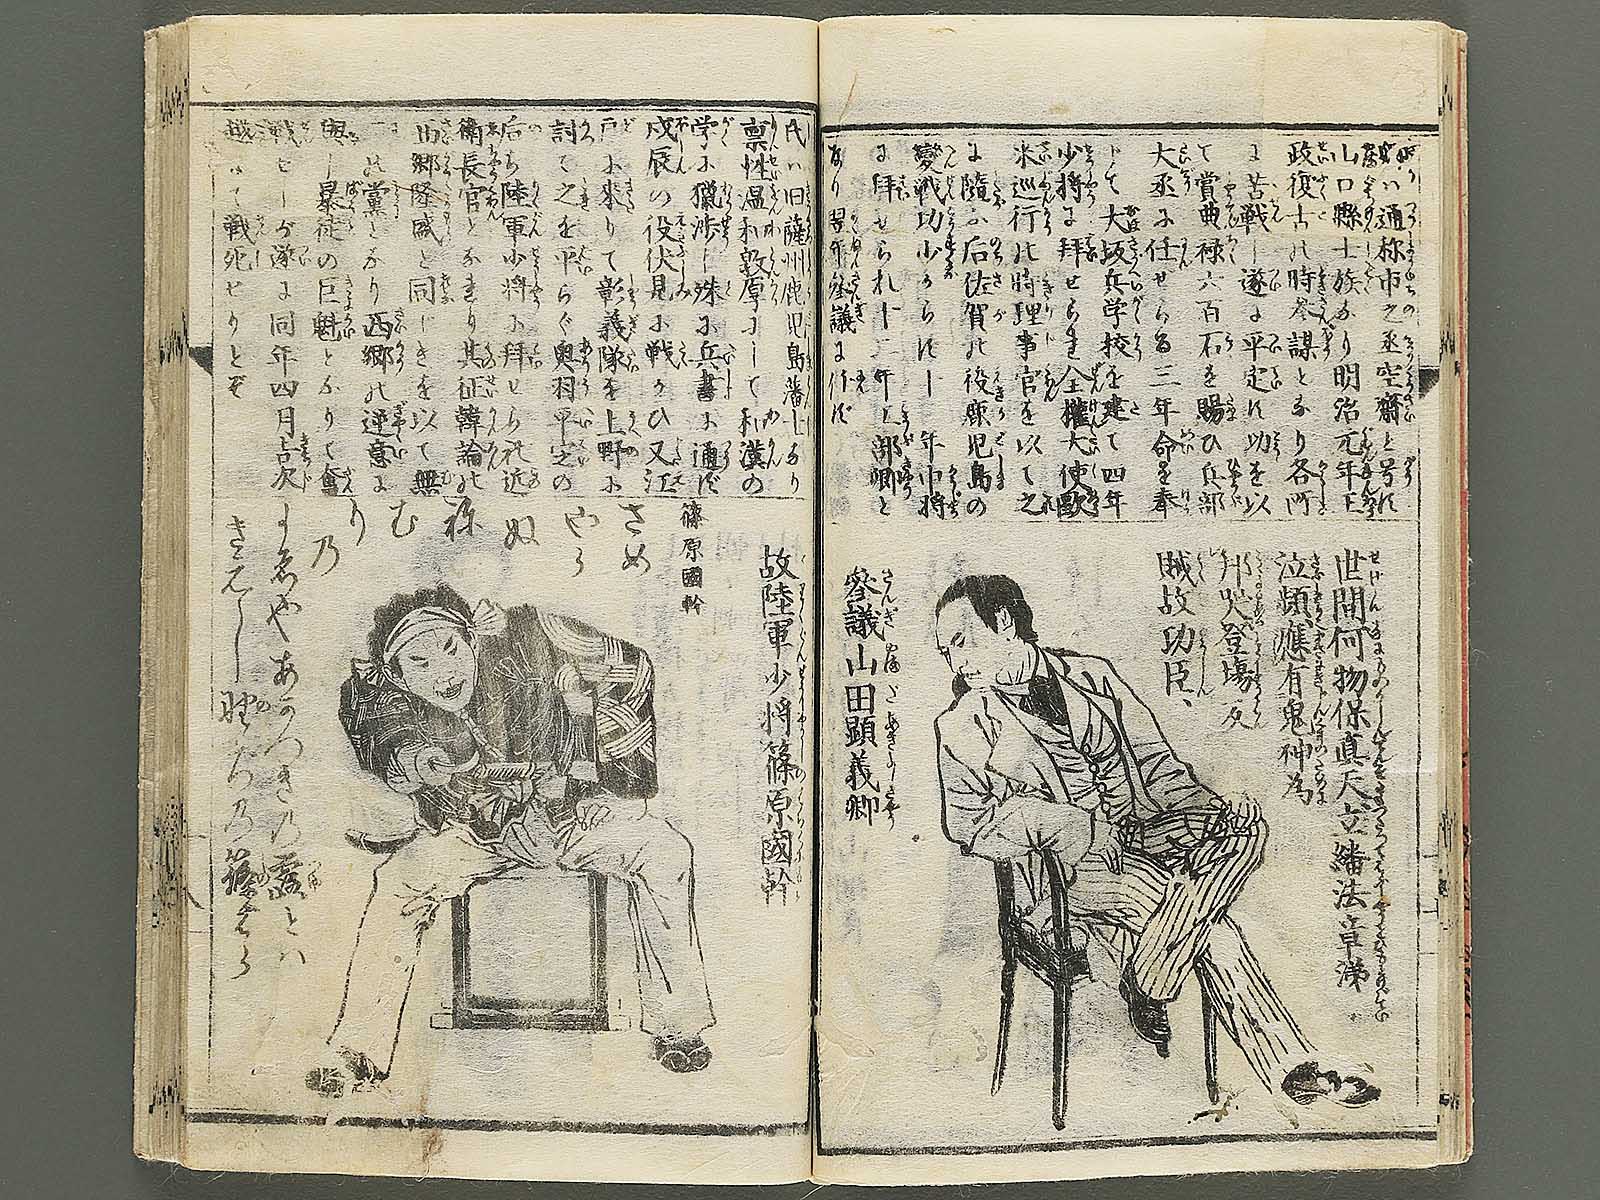 卿ハ通称市之丞空齋と号す
山口縣士族なり明治元年王
政復古の時参謀となり各所
に苦戦し遂に平定す功を以
て賞典禄六百石を賜ひ兵部
大丞に任せらる三年命を奉
して大坂兵学校を建て四年
少将に拝せらる全權大使歐
米巡行の時理事官を以て之
に隨ふ后佐賀の役鹿児島の
變戦功少からす十一年中将
に拝せられ十二年工部卿と
なり翌年参議に任す
世間何物保真天立繙法章涕
泣頻應有鬼神為
抃哭登場反
賊故功臣
参議山田顕義卿
氏ハ旧薩州鹿児島藩士なり
禀性温和敦厚にして和漢の
学に獵渉し殊に兵書に通ず
戊辰の役伏見に戦かひ又江
戸に來りて彰義隊を上野に
討て之を平らぐ奥羽平定の
后ち陸軍少将に拝せられ近
衛長官となれり其征韓論の
西郷隆盛と同じきを以て無
二の黨となり西郷の逆意に
與し暴徒の巨魁となりて奮
戦せしが遂に同年四月吉次
越にて戦死せりとぞ
故陸軍少将篠原國幹
篠原國幹
さめ
やら
ぬ
祢
む
り
乃
まゑやあかつきの露とハ
きえし野ちの篠はら